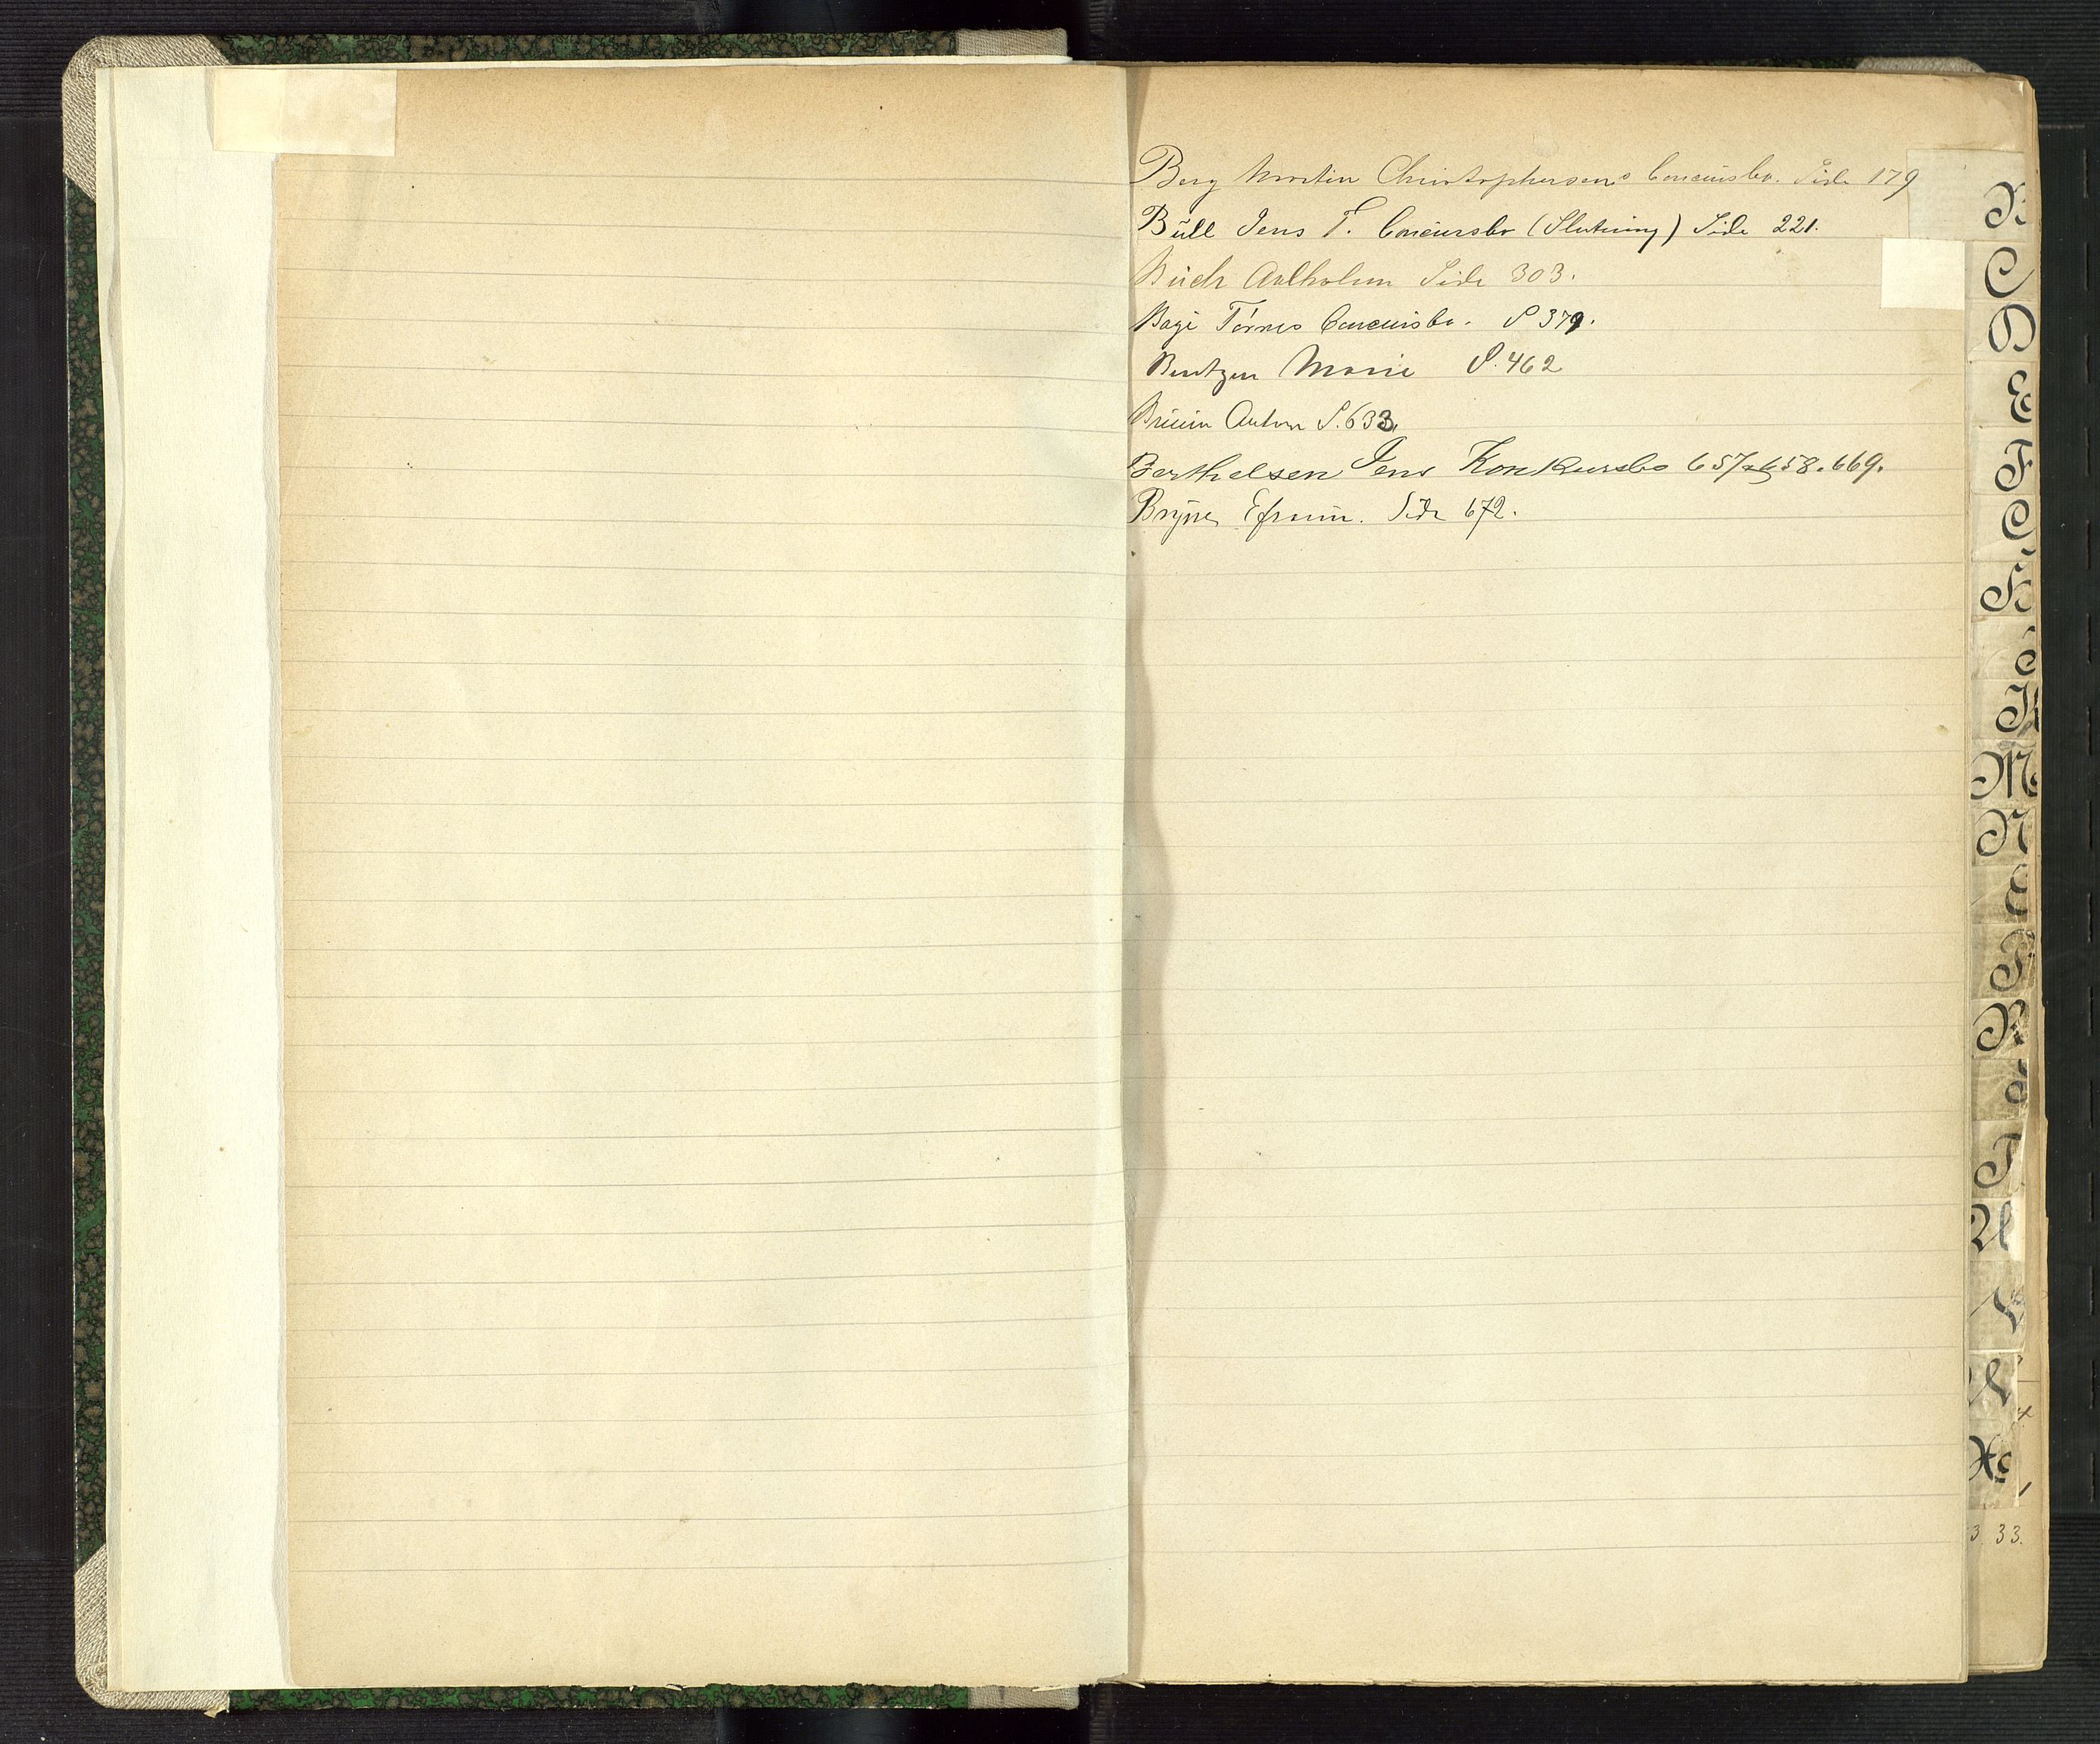 Berg Martin Christophersens Concursbo. Side 179
Büll Jens T. Concursbo (Slutning) Side 221.
Buch Aalholm Side 303.
Bagi Tórres Concursbo. S 379.
Bentzen Marie S. 462
Bruun Anton S. 633.
Berthelsen Jens Konkursbo 657 og 658. 669.
Bryne, Efraim. Side 672.
B
C
D
E
F
G
H
I
K
M
N
O
P
R
S
T
U
V
W
Æ
3 33.